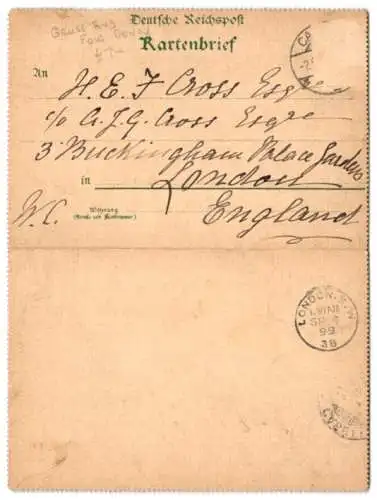 Deutsche Reichspost
Kartenbrief
An
H. E. J Cross Esqre
c/o A. J. G. Cross Esqre
3 Buckingham Palace Gardens
in London
W. C. England
Wohnung
(Straße und Hausnummer)
LONDON. S.W
SP
99
38